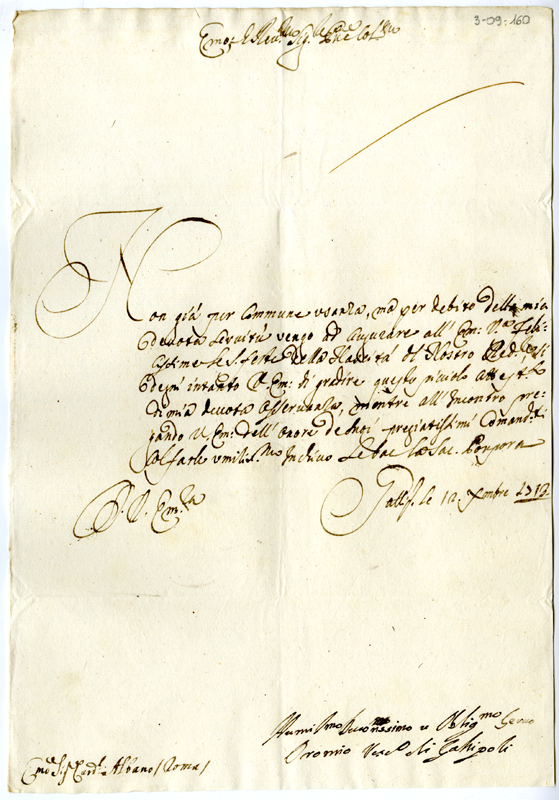 3-09:160
Emo e Reu.mo Sig.re Pne Col.mo
Non già per Commune usanza, ma per debito della mia
deuota Seruitù vengo ad Augurare all' Em: V.ra Feli-
cissime le S. Feste della Natiuità del Nostro Red.re Si
degni intanto V. Em: di gradire questo picciolo attest.to
di mia deuota osseruanza, mentre all' Incontro pre-
gando V. Em: dell' onore de suoi pregiatissimi Comand.ti
col farle umiliss.mo Inchino le bac la Sac. Porpora
D. V. Em.za
Gallip. le 12. Xmbre 1712
Humilmo Deuotissimo e Obligmo Seruo
Oronzio Vesc.o di Gallipoli
Emo Sig.r Card.l Albano /Roma/